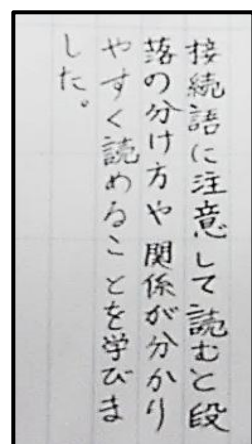 接続語に注意して読むと段
落の分け方や関係が分かり
やすく読めることを学びま
した。